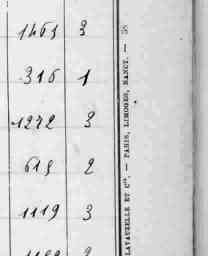 1463 3
316 1
1272 3
613 2
1119 3
LAVAUZELLE ET Cie. — PARIS, LIMOGES, NANCY. — 58